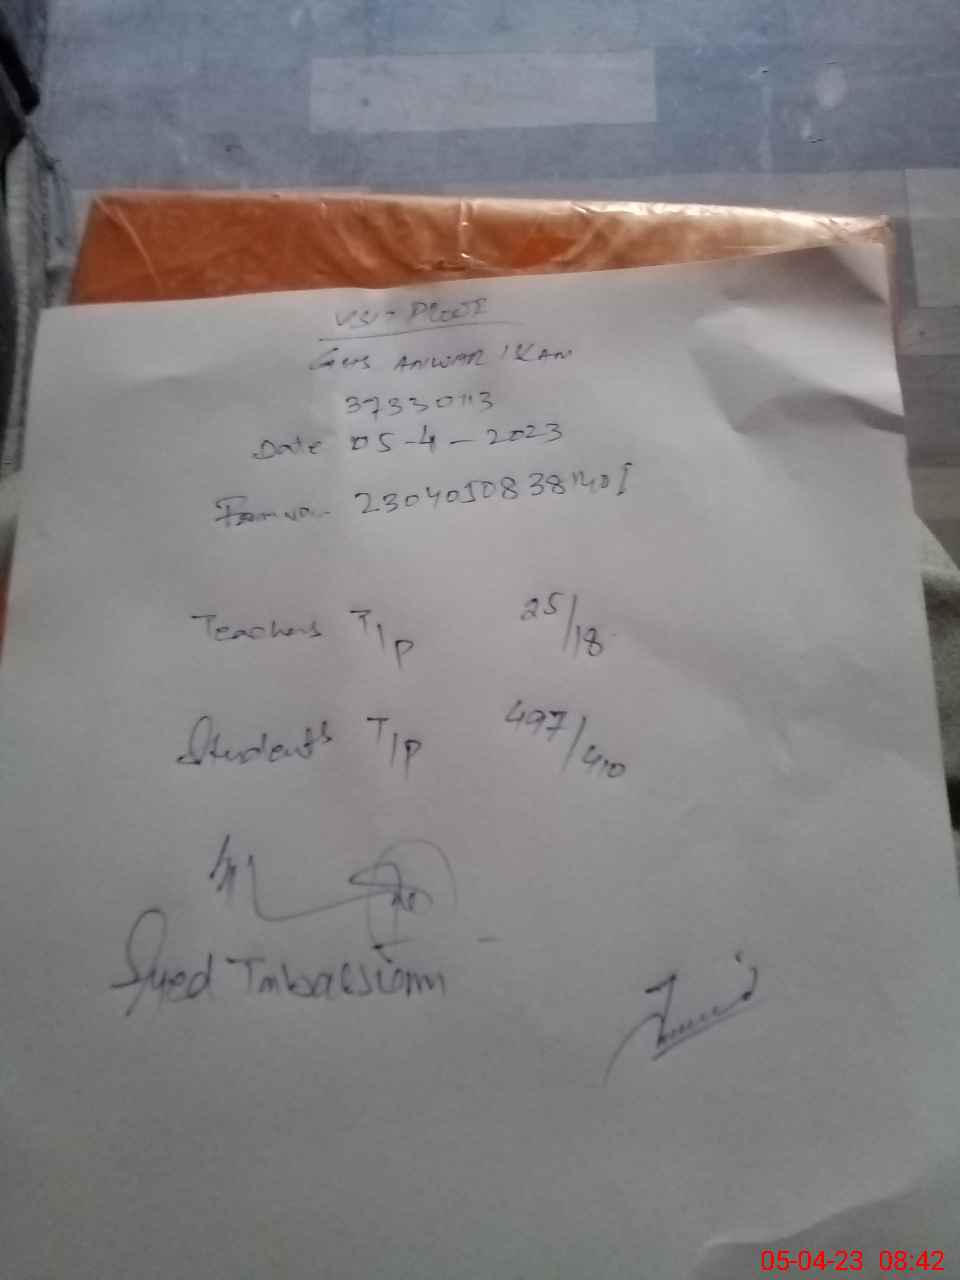 VSI - PROOF
GGHS ANWAR IKAM
37330113
Date 05-4-2023
Form no. 2304050838140I
Teachers T/P 25/18
Students T/P 497/410
Syed
05-04-23 08:42